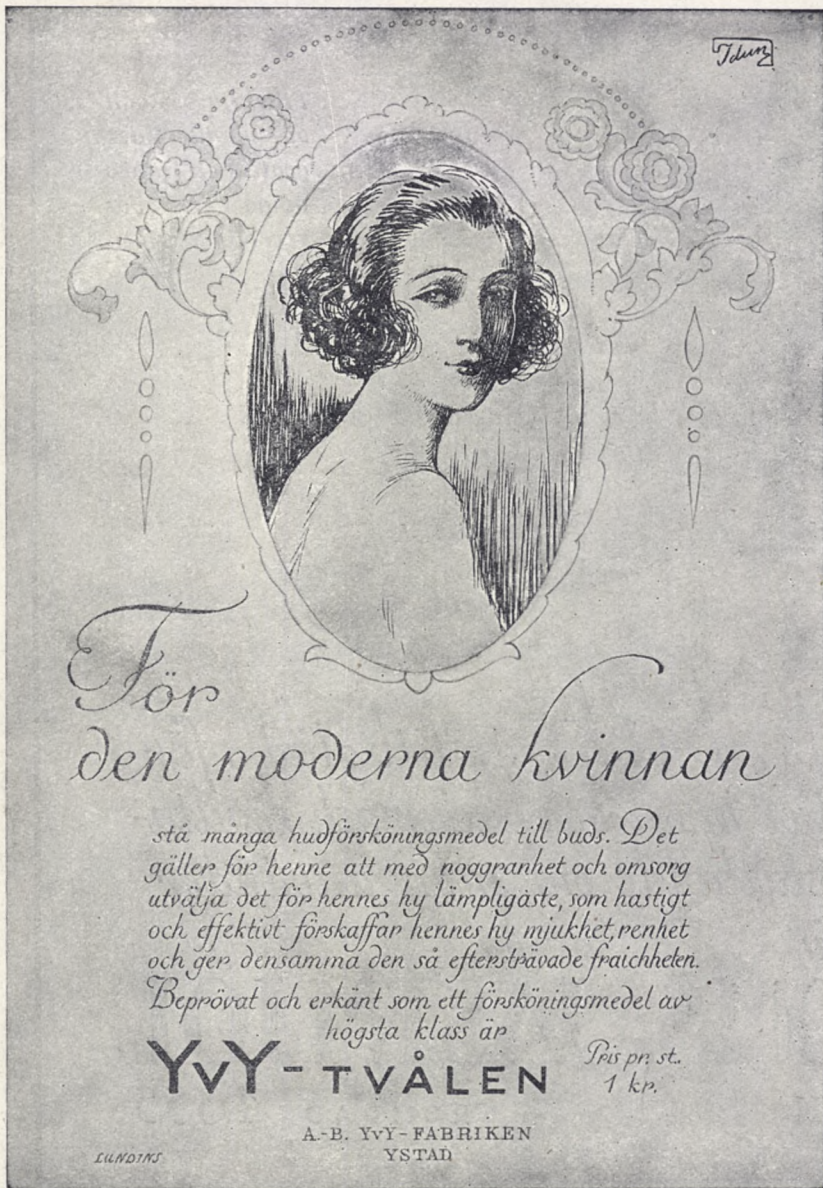 Idun
För
den moderna kvinnan
stå många hudförsköningsmedel till buds. Det
gäller för henne att med noggranhet och omsorg
utvälja det för hennes hy lämpligaste, som hastigt
och effektivt förskaffar hennes hy mjukhet, renhet
och ger densamma den så eftersträvade fraichheten.
Beprövat och erkänt som ett försköningsmedel av
högsta klass är
YvY-TVÅLEN
Pris pr. st.
1 kr.
A.-B. YvY-FABRIKEN
YSTAD
LUNDINS